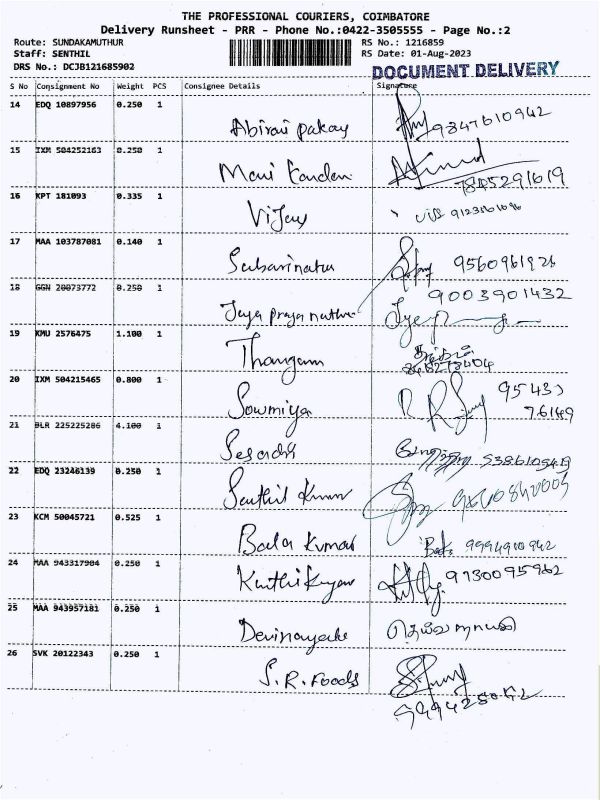 THE PROFESSIONAL COURIERS, COIMBATORE
Delivery Runsheet - PRR - Phone No.:0422-3505555 - Page No.:2
Route: SUNDAKAMUTHUR RS No.: 1216859
Staff: SENTHIL RS Date: 01-Aug-2023
DRS No.: DCJB121685902 DOCUMENT DELIVERY
S No Consignment No Weight PCS Consignee Details Signature
14 EDQ 10897956 0.250 1
Abirai pakay 9347610942
15 IXM 504252163 0.250 1
Mani Kandan 7845291619
16 KPT 181093 0.335 1
Vijay
17 MAA 103787081 0.140 1
Sabarinatha 9560961926
18 GGN 20073772 0.250 1
9003901432
Jaya praya natha
19 KMU 2576475 1.100 1
Thangam
20 IXM 504215465 0.800 1
Sowmiya
21 BLR 225225286 4.100 1
Sesadri
22 EDQ 23246139 0.250 1
Senthil Kumar
23 KCM 50045721 0.525 1
Bala Kumar 9994910942
24 MAA 943317904 0.250 1
9730095962
25 MAA 943957181 0.250 1
Devinayaki தெய்வநாயகி
26 SVK 20122343 0.250 1
S.R. Foods